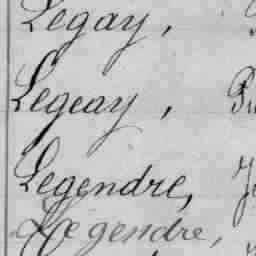 Legay,
Legeay,
Legendre,
Legendre,